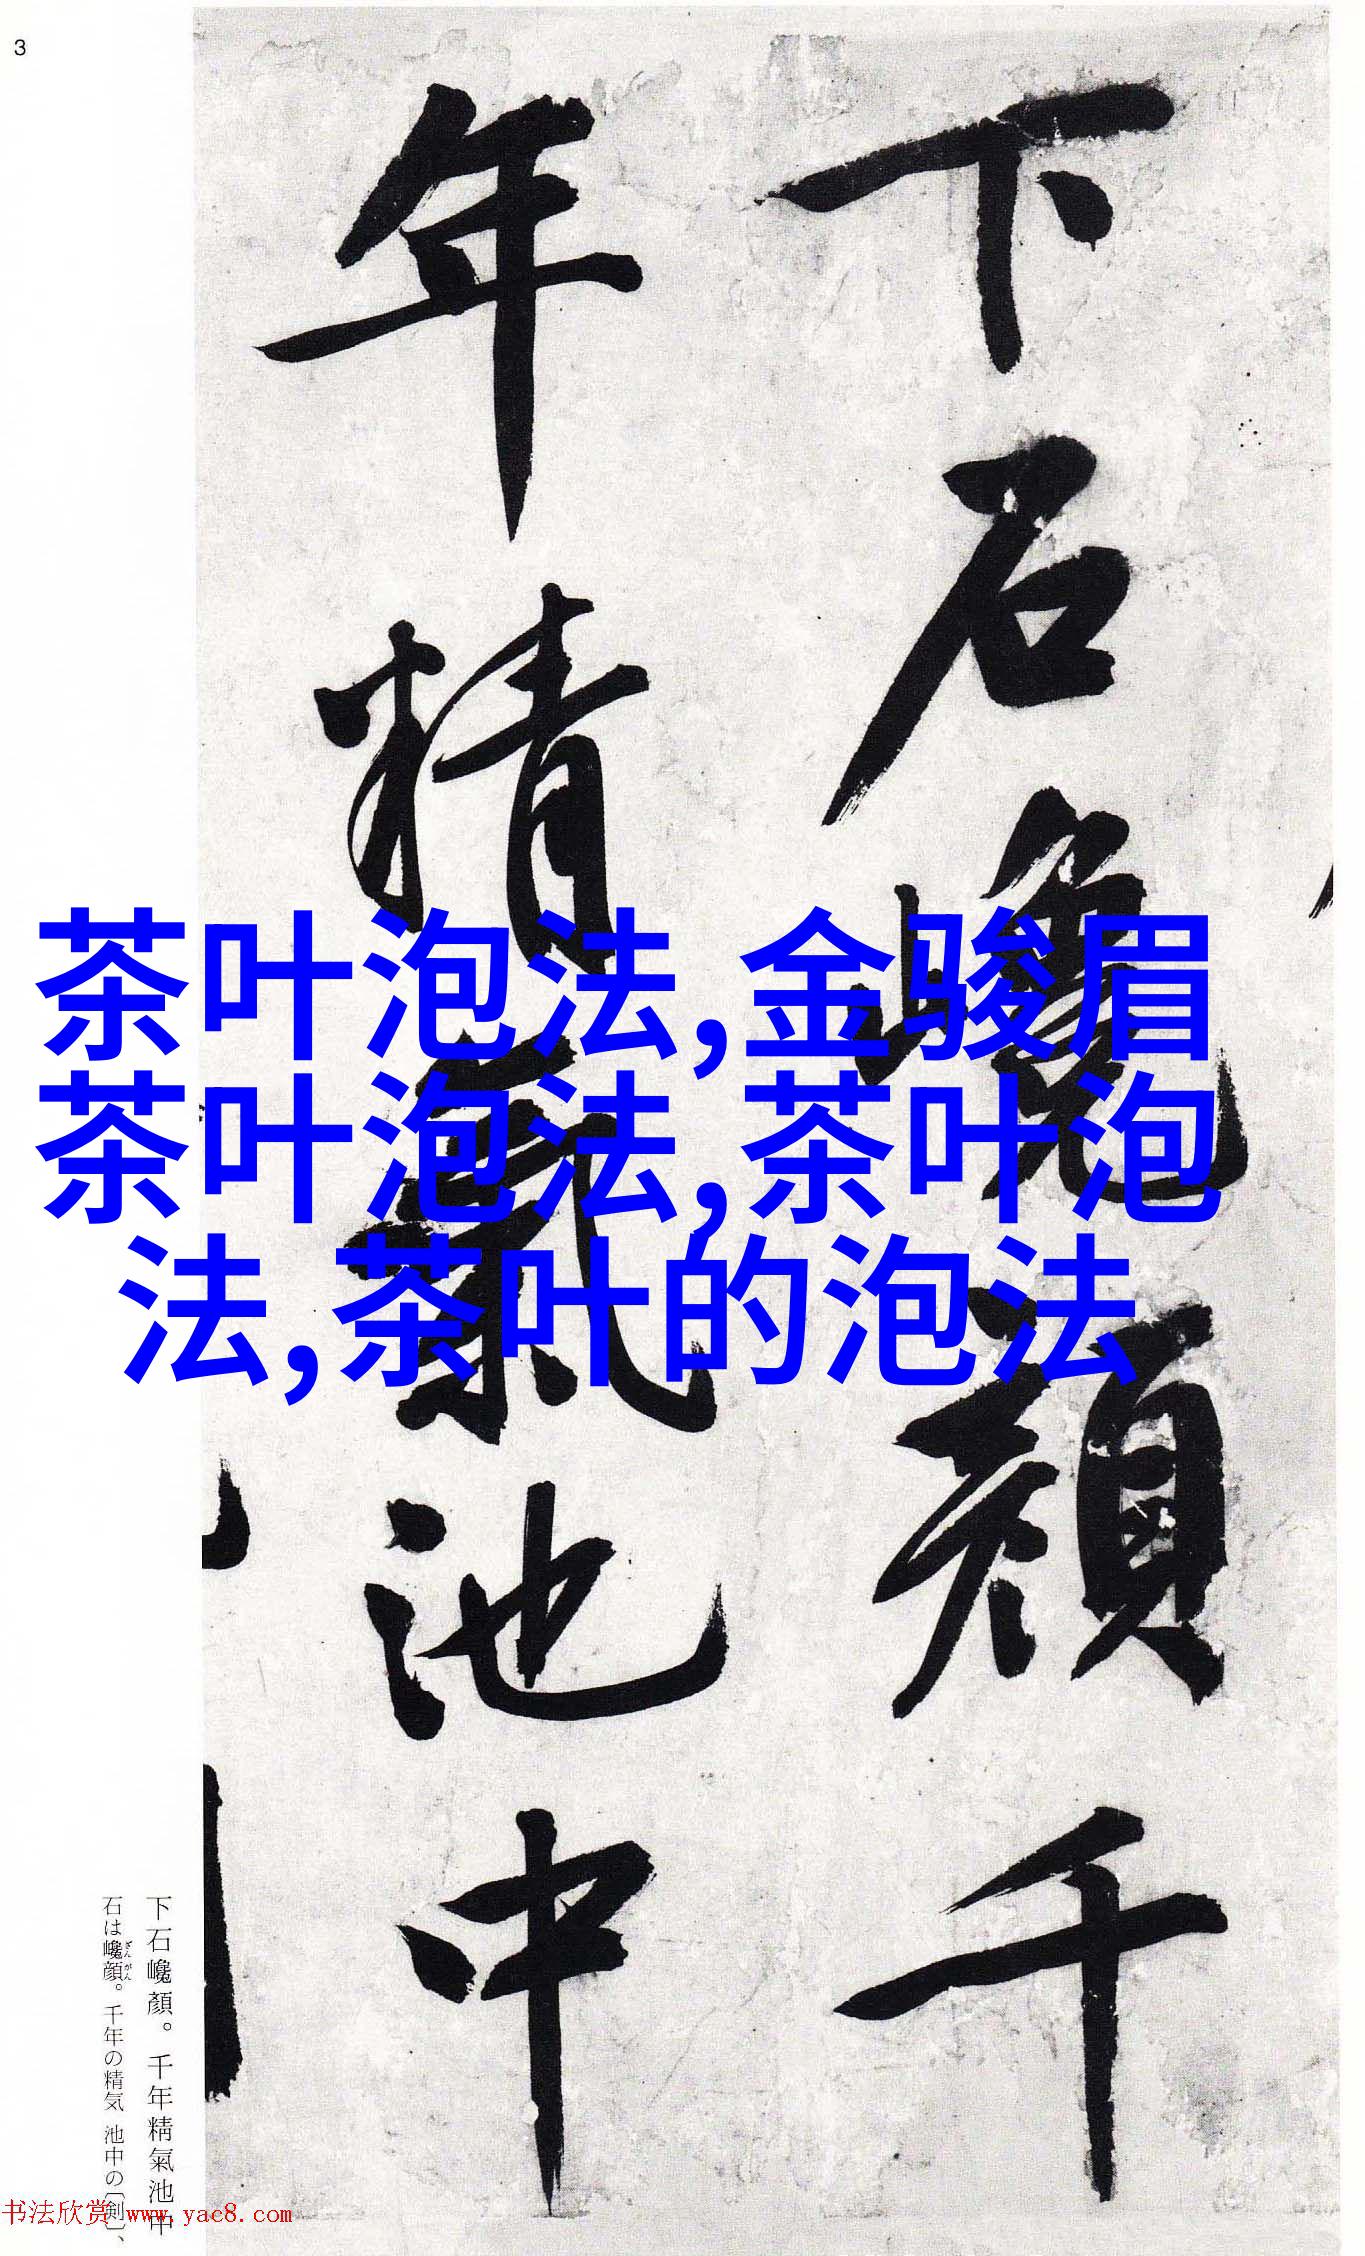 3
下石巉顔千
年精氣池中
茶叶泡法,金骏眉
茶叶泡法,茶叶泡
法,茶叶的泡法
下石巉顏。千年精氣池中
石は巉顔。千年の精気 池中の〔剣〕、
ざんがん
书法欣赏 www.yac8.com